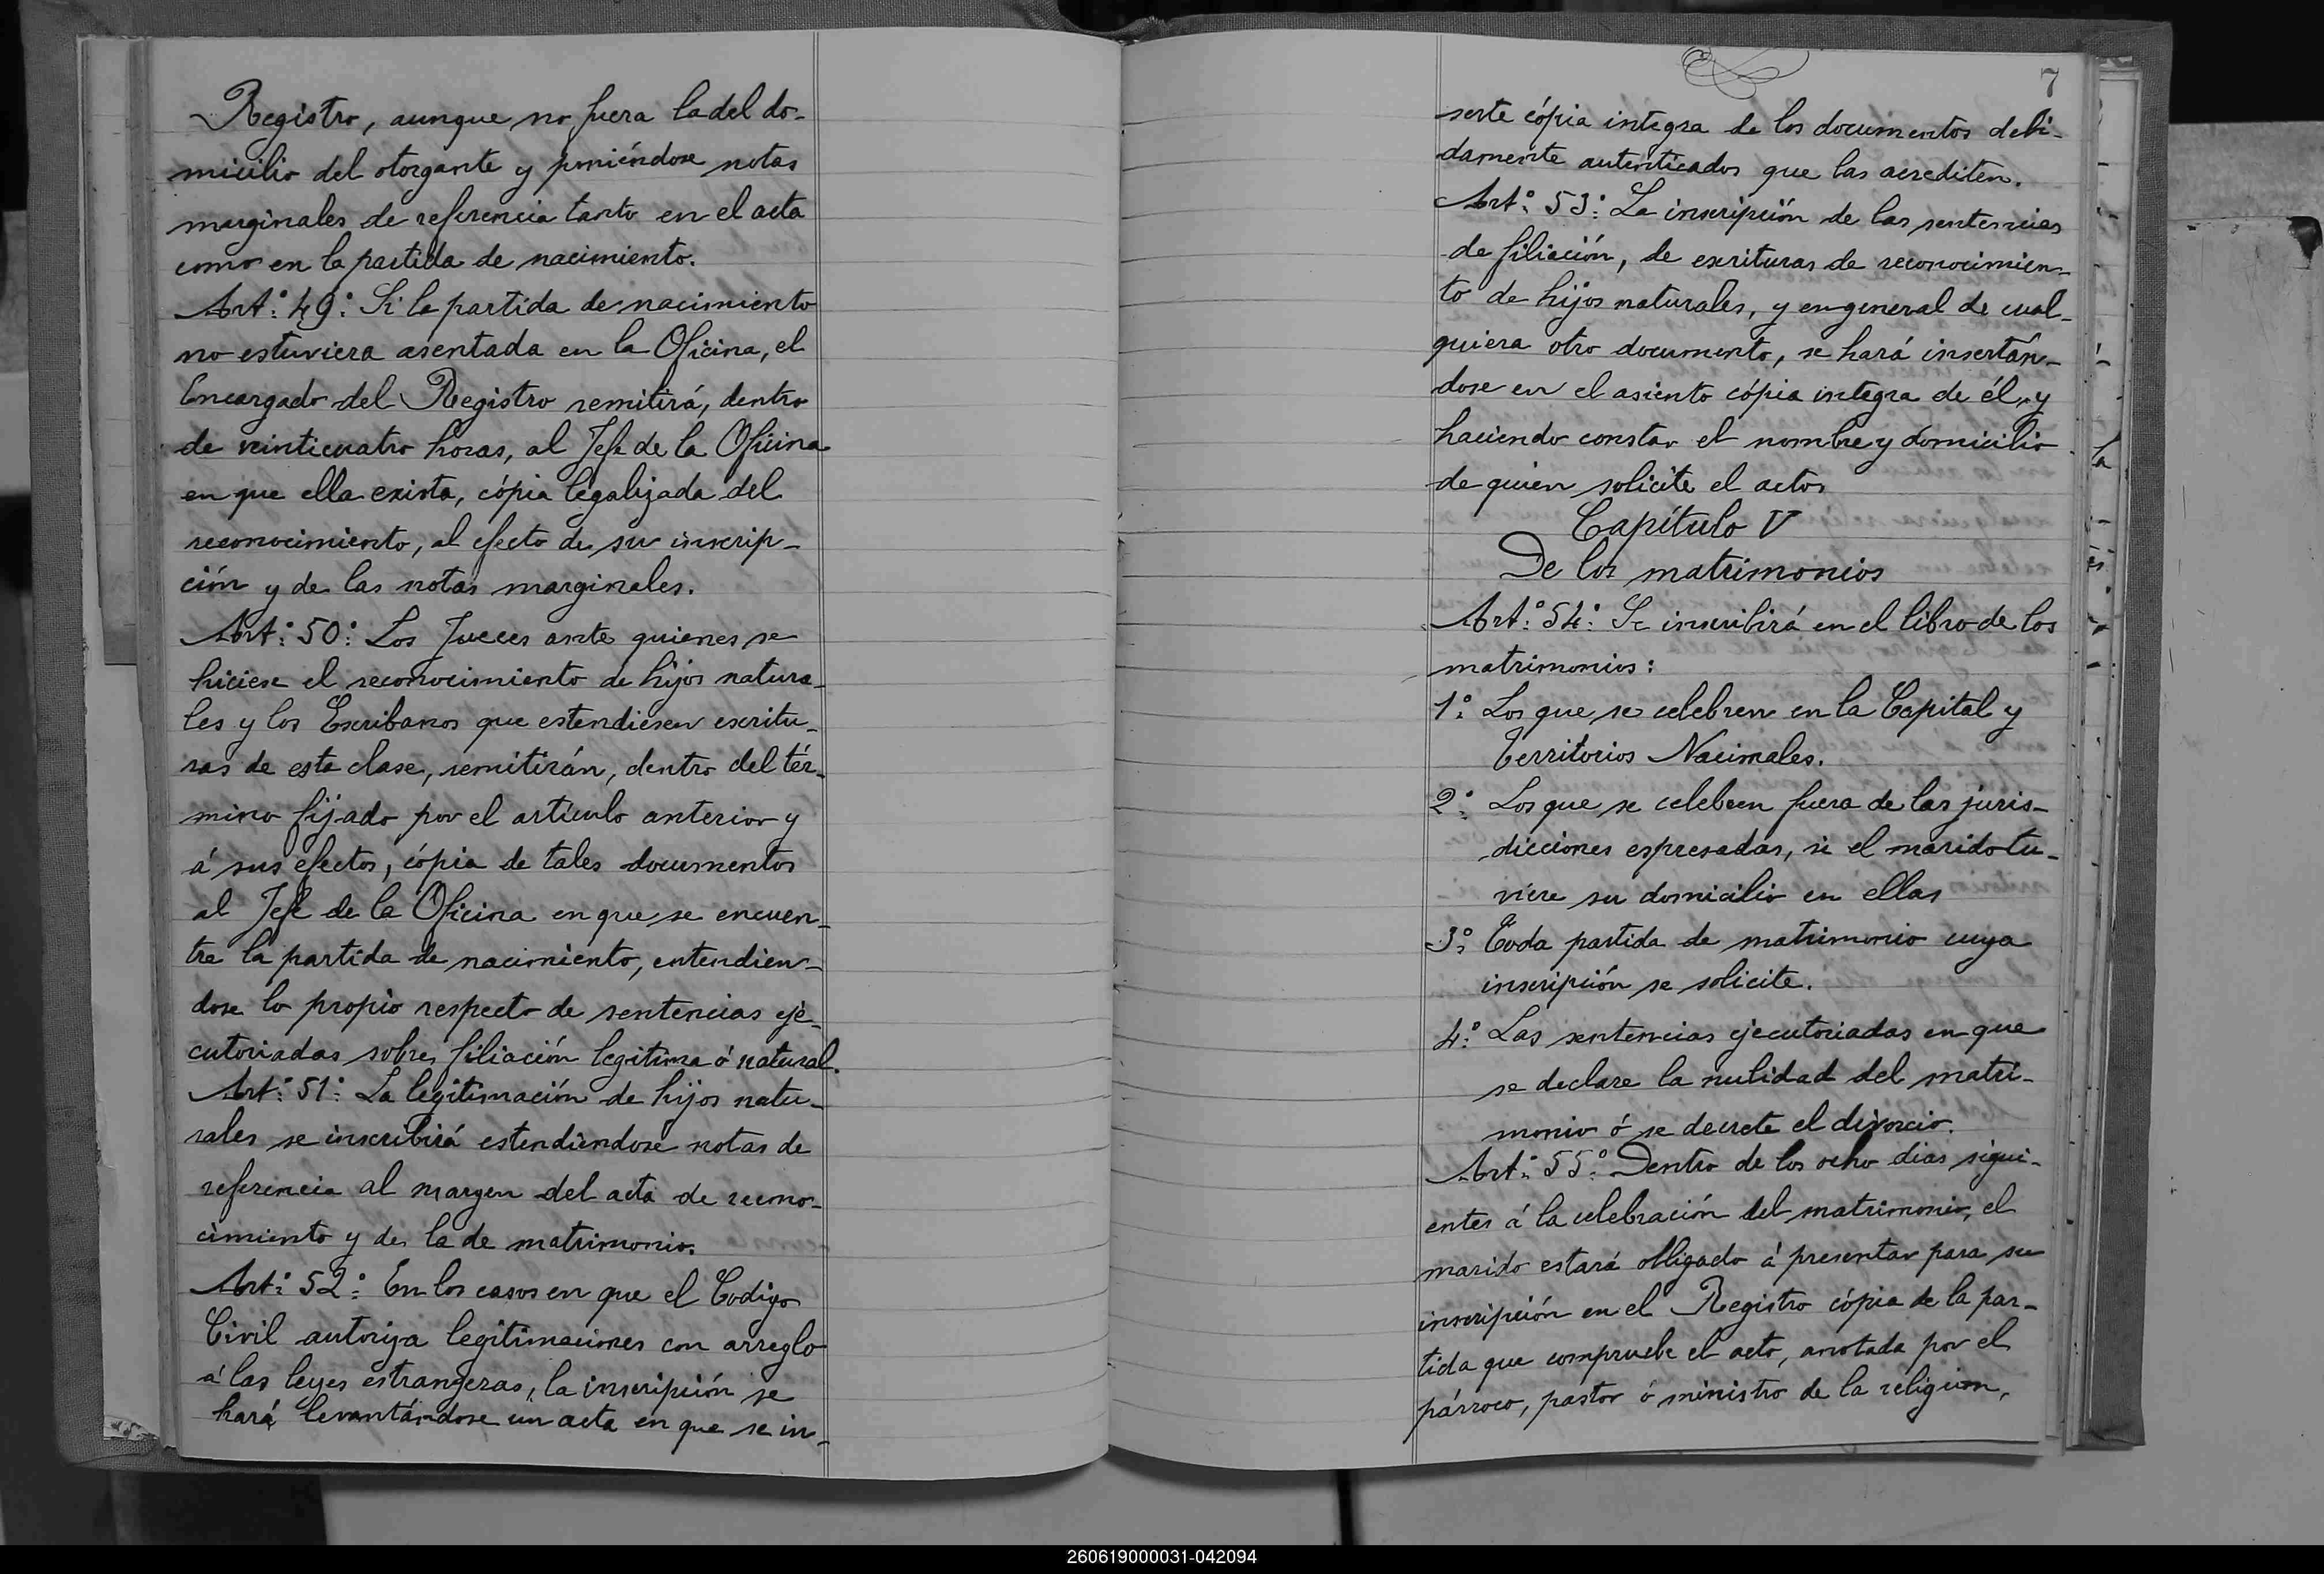 Registro, aunque no fuera la del do-
micilio del otorgante y poniéndose notas
marginales de referencia tanto en el acta
como en la partida de nacimiento.
Art.° 49.° Si la partida de nacimiento
no estuviera asentada en la Oficina, el
Encargado del Registro remitirá, dentro
de veinticuatro horas, al Jefe de la Oficina
en que ella exista, cópia legalizada del
reconocimiento, al efecto de su inscrip-
ción y de las notas marginales.
Art.° 50.° Los Jueces ante quienes se
hiciese el reconocimiento de hijos natura-
les y los Escribanos que estendiesen escritu-
ras de esta clase, remitirán, dentro del tér-
mino fijado por el artículo anterior y
á sus efectos, cópia de tales documentos
al Jefe de la Oficina en que se encuen-
tre la partida de nacimiento, entendien-
dose lo propio respecto de sentencias eje-
cutoriadas sobre filiación legitima ó natural.
Art.° 51.° La legitimación de hijos natu-
rales se inscribirá estendiendose notas de
referencia al margen del acta de recono-
cimiento y de la de matrimonio.
Art.° 52.° En los casos en que el Codigo
Civil autoriza legitimaciones con arreglo
á las leyes estrangeras, la inscripción se
hará levantándose un acta en que se in-
7
serte cópia integra de los documentos debi-
damente autenticados que las acrediten.
Art.° 53.° La inscripción de las sentencias
de filiación, de escrituras de reconocimien-
to de hijos naturales, y en general de cual-
quiera otro documento, se hará insertán-
dose en el asiento cópia integra de él, y
haciendo constar el nombre y domicilio
de quien solicite el acto.
Capítulo V
De los matrimonios
Art.° 54.° Se inscribirá en el libro de los
matrimonios:
1.° Los que se celebren en la Capital y
Territorios Nacionales.
2.° Los que se celebren fuera de las juris-
dicciones espresadas, si el marido tu-
viere su domicilio en ellas
3.° Toda partida de matrimonio cuya
inscripción se solicite.
4.° Las sentencias ejecutoriadas en que
se declare la nulidad del matri-
monio ó se decrete el divorcio.
Art.° 55.° Dentro de los ocho dias sigui-
entes á la celebración del matrimonio, el
marido estará obligado á presentar para su
inscripción en el Registro cópia de la par-
tida que compruebe el acto, anotada por el
párroco, pastor ó ministro de la religion,
260619000031-042094